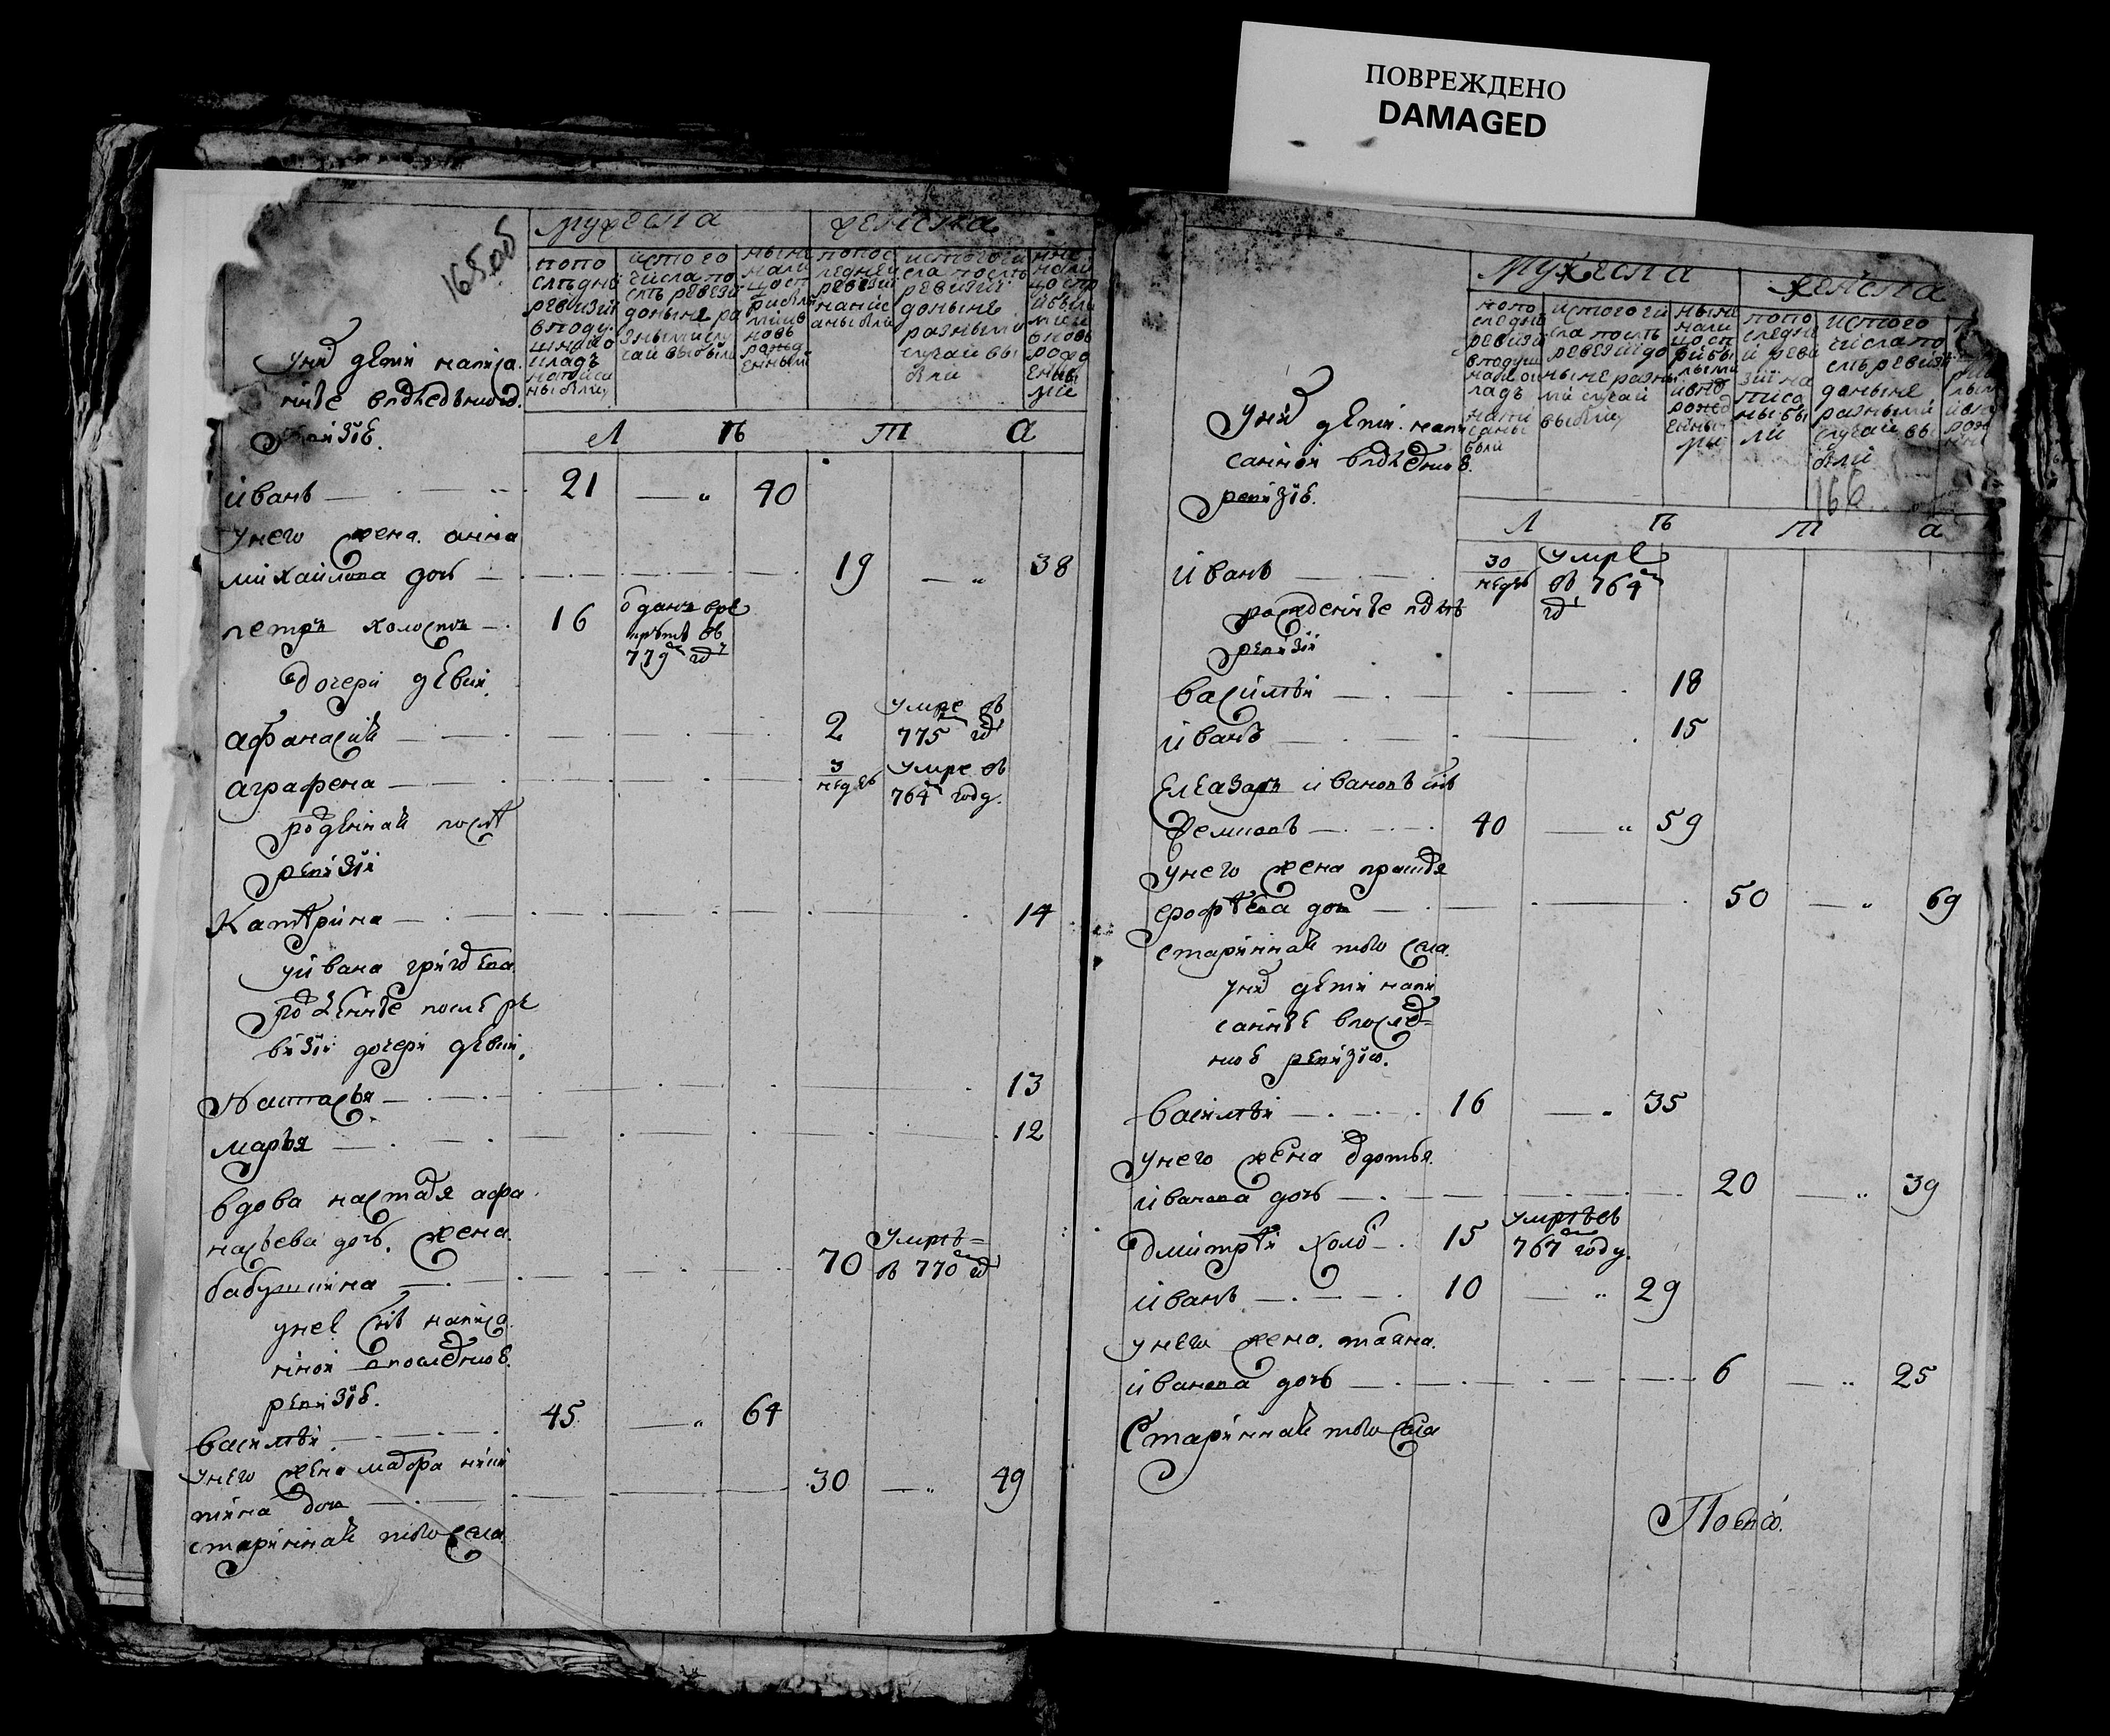 ПОВРЕЖДЕНО
DAMAGED
165об
мужеска
женска
попо
следне
ревизи
в поду
шно
кладъ
написа
ны были
истого
числа по
слѣ ревизи
доныне ра
зными слу
чаи выбыли
ныне
нали
цо с
ново
рожд
енными
попос
ледней
ревизи
напис
аны были
истого чи
сла послѣ
ревизии
доныне
разными
случаи вы
были
ныне
нали
цо с пр
ибылы
ми и
вново
рож
енны
ми
у них дети написа
ние в последнеи
ревизiе
Л ѣ т а
иванъ 21 — " 40
у него жена анна
михаилова дочь 19 — " 38
петръ холостъ 16 отданъ в ре
круты въ
779м году
дочери девки
афанасия 2 умре въ
775м году
аграфена 3 недель умре въ
764м году
рожденная послѣ
ревизiи
катерина 14
у ивана григорьева
рожденные после ре
визiи дочери девки
настасья 13
марья 12
вдова настасья афа
насьева дочь жена
бабушкина 70 умре
въ 770м году
у нее сынъ написа
нной в последнюю
ревизiе
василеи 45 — " 64
у него жена мавра ники
тина дочь 30 — " 49
старинная того села
мужеска
женска
попо
следне
ревизи
в подуш
ной ок
ладъ
напи
саны
были
истого чи
сла послѣ
ревезии до
ныне разны
ми случаи
выбыли
ныне
нали
цо с п
рибы
лыми
и вно
рожд
енны
ми
попо
следне
и реви
зии на
писа
ны бы
ли
истого
числа по
слѣ ревизи
доныне
разными
случаи вы
были
166
у них дети напи
санной в последнюю
ревизiе
Л ѣ т а
иванъ 30 недель умре
въ 764м
году
рожденные послѣ
ревизiи
василеи 18
иванъ 15
елеазаръ ивановъ снъ
деминъ 40 — " 59
у него жена прасковья
ерофеева дочь 50 — " 69
старинная того села
у них дети напи
санные в послед=
нюю ревизiю
василеи 16 — " 35
у него жена авдотья
иванова дочь 20 — " 39
дмитреи холо 15 умре въ
767м году
иванъ 10 — " 29
у него жена татяна
иванова дочь 6 — " 25
старинная того села